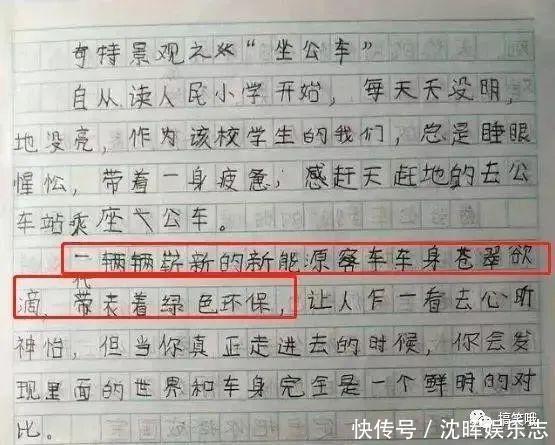 奇特景观之“坐公车”
自从读人民小学开始，每天天没明，
地没亮，作为该校学生的我们，总是睡眼
惺忪，带着一身疲惫，感赶天赶地的去公
车站乘座公车。
一辆辆崭新的新能源客车车身苍翠欲
滴，带代表着绿色环保，让人乍一看去心旷
神怡，但当你真正走进去的时候，你会发
现里面的世界和车身完全是一个鲜明的对
比。
搞笑哦
快传号/沈晖娱乐志